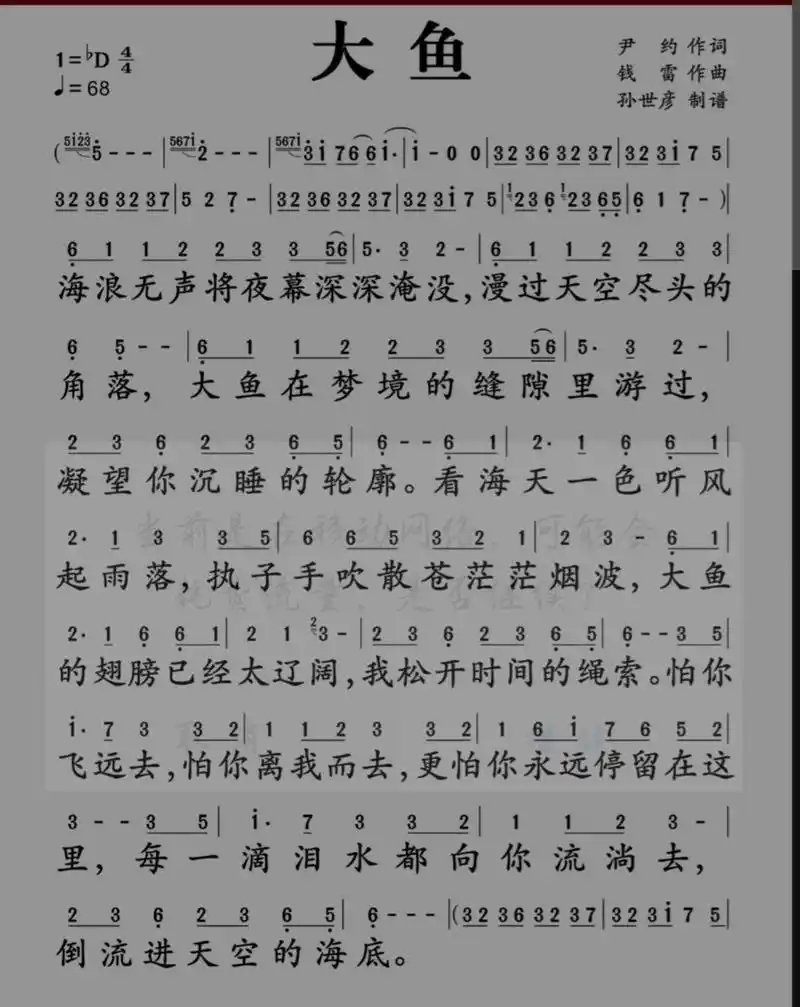 大鱼
1=♭D 4/4
♩=68
尹 约 作词
钱 雷 作曲
孙世彦 制谱
(5i23 5 - - - | 567i 2 - - - | 567i 3 i 7 6 6 i· | i - 0 0 | 32 36 32 37 | 32 3i 7 5 |
32 36 32 37 | 5 2 7 - | 32 36 32 37 | 32 3i 7 5 | 1 23 6 1 23 65 | 6 1 7 - ) |
6 1 1 2 2 3 3 56 | 5· 3 2 - | 6 1 1 2 2 3 3 |
海浪无声将夜幕深深淹没，漫过天空尽头的
6 5 - - | 6 1 1 2 2 3 3 56 | 5· 3 2 - |
角落，大鱼在梦境的缝隙里游过，
2 3 6 2 3 6 5 | 6 - - 6 1 | 2· 1 6 6 1 |
凝望你沉睡的轮廓。看海天一色听风
2· 1 3 3 5 | 6 6 5 3 2 1 | 2 3 - 6 1 |
起雨落，执子手吹散苍茫茫烟波，大鱼
2· 1 6 6 1 | 2 1 2 3 - | 2 3 6 2 3 6 5 | 6 - - 3 5 |
的翅膀已经太辽阔，我松开时间的绳索。怕你
i· 7 3 3 2 | 1 1 2 3 3 2 | 1 6 i 7 6 5 2 |
飞远去，怕你离我而去，更怕你永远停留在这
3 - - 3 5 | i· 7 3 3 2 | 1 1 2 3 - |
里，每一滴泪水都向你流淌去，
2 3 6 2 3 6 5 | 6 - - - | (32 36 32 37 | 32 3i 7 5 |
倒流进天空的海底。